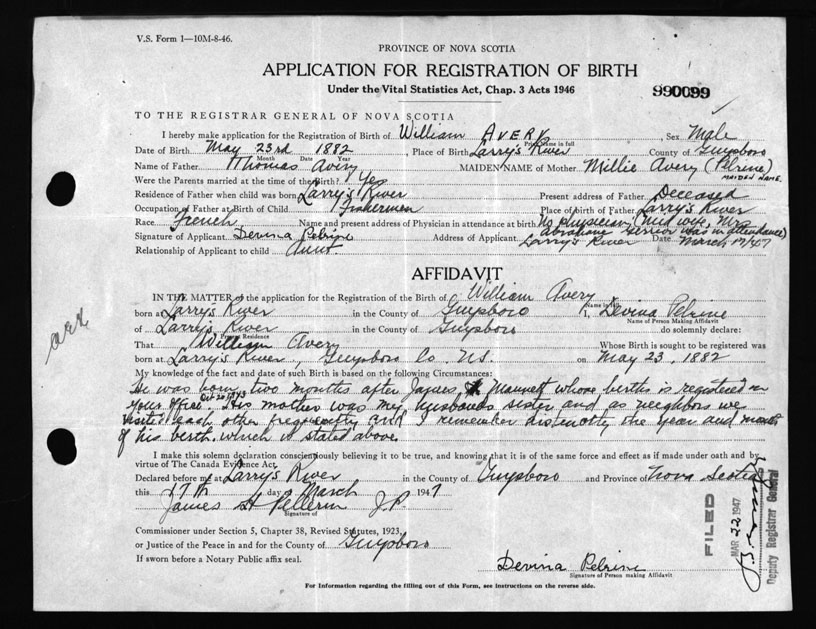 V.S. Form 1—10M-8-46.
PROVINCE OF NOVA SCOTIA
APPLICATION FOR REGISTRATION OF BIRTH
Under the Vital Statistics Act, Chap. 3 Acts 1946
990099
TO THE REGISTRAR GENERAL OF NOVA SCOTIA
I hereby make application for the Registration of Birth of William AVERY, Sex Male
Print Name in full
Date of Birth May 23rd 1882, Place of Birth Larry's River County of Guysboro
Month Date Year
Name of Father Thomas Avery MAIDEN NAME of Mother Millie Avery (Pelrine)
MAIDEN NAME.
Were the Parents married at the time of the birth? Yes
Residence of Father when child was born Larry's River Present address of Father Deceased
Occupation of Father at Birth of Child Fisherman Place of birth of Father Larry's River
Race French Name and present address of Physician in attendance at birth No physician (Mid wife, Mrs
was in attendance)
Signature of Applicant Devina Pelrine Address of Applicant Larry's River Date March 17/47
Relationship of Applicant to child Aunt.
AFFIDAVIT
IN THE MATTER of the application for the Registration of the Birth of William Avery
Name in full
born at Larry's River in the County of Guysboro I, Devina Pelrine
Name of Person Making Affidavit
of Larry's River in the County of Guysboro do solemnly declare:
Present Residence
That William Avery Whose Birth is sought to be registered was
born at Larry's River, Guysboro Co. N.S. on May 23, 1882
My knowledge of the fact and date of such Birth is based on the following Circumstances:
He was born two months after James Mannett whose births is registered in
your office. His mother was my husbands sister and as neighbors we
visited each other frequently and I remember distinctly the year and month
of his birth which is stated above
I make this solemn declaration conscienciously believing it to be true, and knowing that it is of the same force and effect as if made under oath and by
virtue of The Canada Evidence Act.
Declared before me at Larry's River in the County of Guysboro and Province of Nova Scotia
this 17th day of March 1947
James H Pellerin J.P.
Signature of
Commissioner under Section 5, Chapter 38, Revised Statutes, 1923,
or Justice of the Peace in and for the County of Guysboro
If sworn before a Notary Public affix seal.
Devina Pelrine
Signature of Person making Affidavit
For Information regarding the filling out of this Form, see instructions on the reverse side.
FILED
MAR 22 1947
Deputy Registrar General